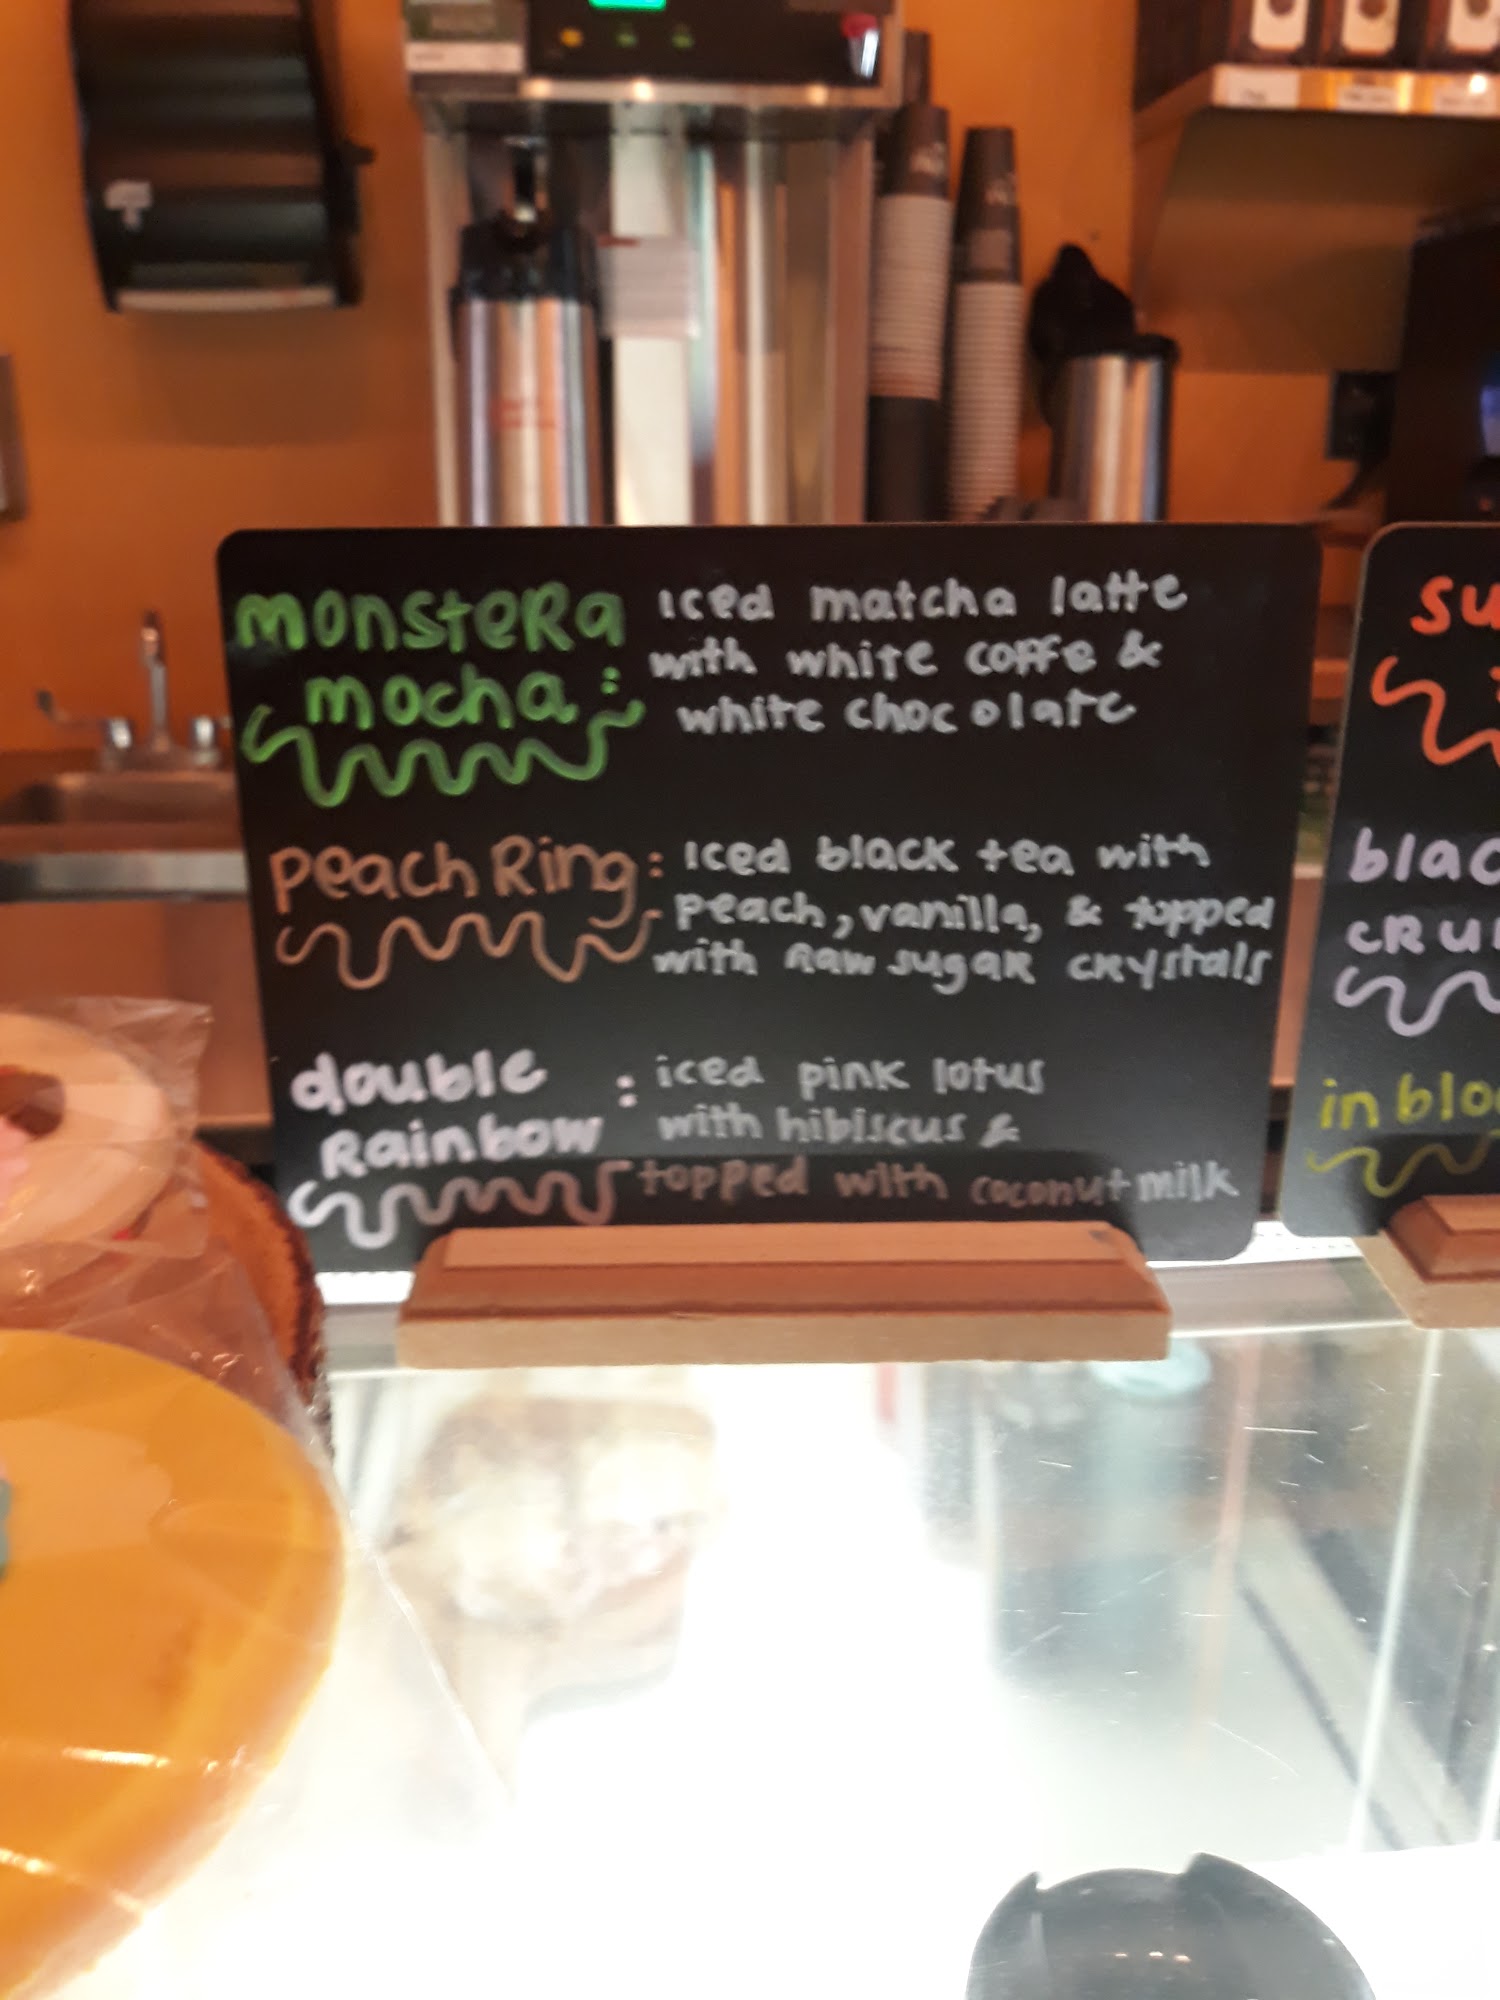 monsteRa
mocha:
iced matcha latte
with white coffe &
white chocolate
peach Ring:
iced black tea with
peach, vanilla, & topped
with Raw sugar crystals
double
Rainbow :
iced pink lotus
with hibiscus &
topped with coconut milk
su
blac
cru
in bloo